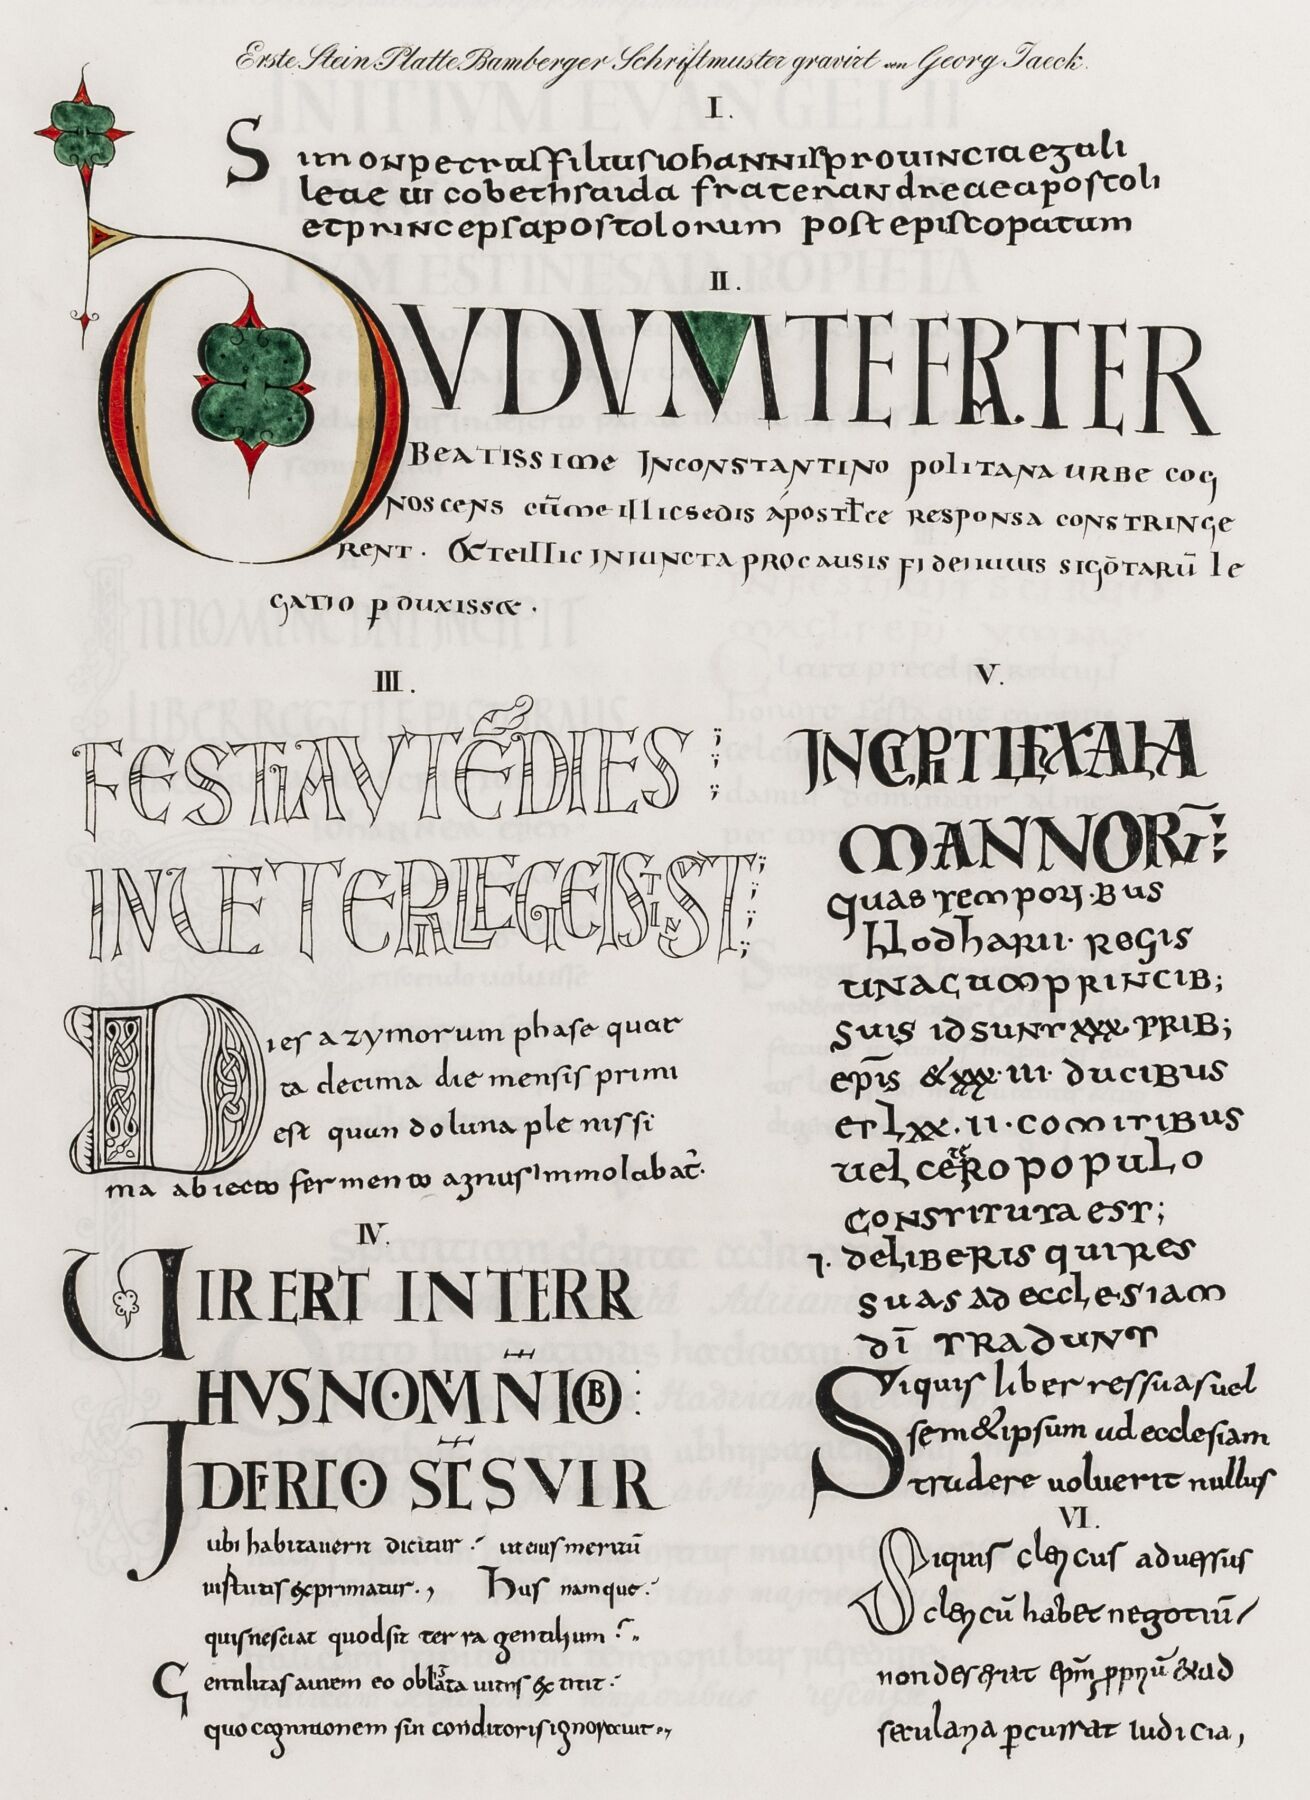 Erste Stein Platte Bamberger Schriftmuster gravirt von Georg Jaeck.
I.
Simon petrus filius iohannis provinciae gali
leae vi co bethsaida frater andreae apostoli
et princeps apostolorum post episcopatum
II.
QUDUM TE FRATER
BEATISSIME INCONSTANTINO POLITANA URBE COG
NOSCENS cūme illic sedis apostolce RESPONSA CONSTRINGE
RENT. &teillic INIUNCTA PROCAUSIS fideiuuius sigōtarū le
GATIO p duxisse.
III.
FESTI AUTĒ DIES
IN UETERI LEGE IS TI ST
Dies azymorum phase quar
ta decima die mensis primi
est quando luna ple nissi
ma abiecto fermento agnus immolabat̄.
IV.
UIR ERT IN TERR
HUS NOMINIOB:
IDER IO S̄C̄S VIR
ubi habitauern dicitur. ut eius meritū
uirtutis exprimatur., Hus namque.
quis nesciat quod sit terra gentilium
Gentilitas autem eo oblata uitiis extitit.
quo cognitionem sui conditoris ignorauit.,
V.
INCIPIT LEX ALA
MANNOR̄:
quas temporibus
Hlodharii. regis
una cum princib;
suis id sunt xxx. PRIB;
ep̄is &xxx.iii. ducibus
et lxx.ii. comitibus
uel cetero populo
constituta est;
1. de liberis qui res
suas ad ecclesiam
dī tradunt
Si quis liber res suas uel
sem&ipsum ad ecclesiam
tradere uoluerit nullus
VI.
Si quis clericus aduersus
clericū habet negotiū
non deserat ep̄m ppriū & ad
secularia pcurrat iudicia,